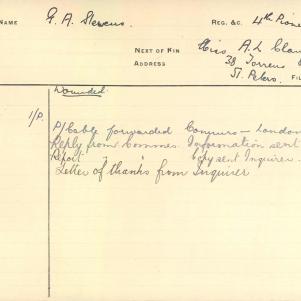 NAME G. A. Stevens REG. &C. 4th Pione
NEXT OF KIN Miss A. L
ADDRESS 38 Torrens
St. Peters. FIL
Wounded.
1/P. P/Cable forwarded Commrs - London
Reply from Commrs. Information sent
Report " " Copy sent Inquirer.
Letter of thanks from Inquirer